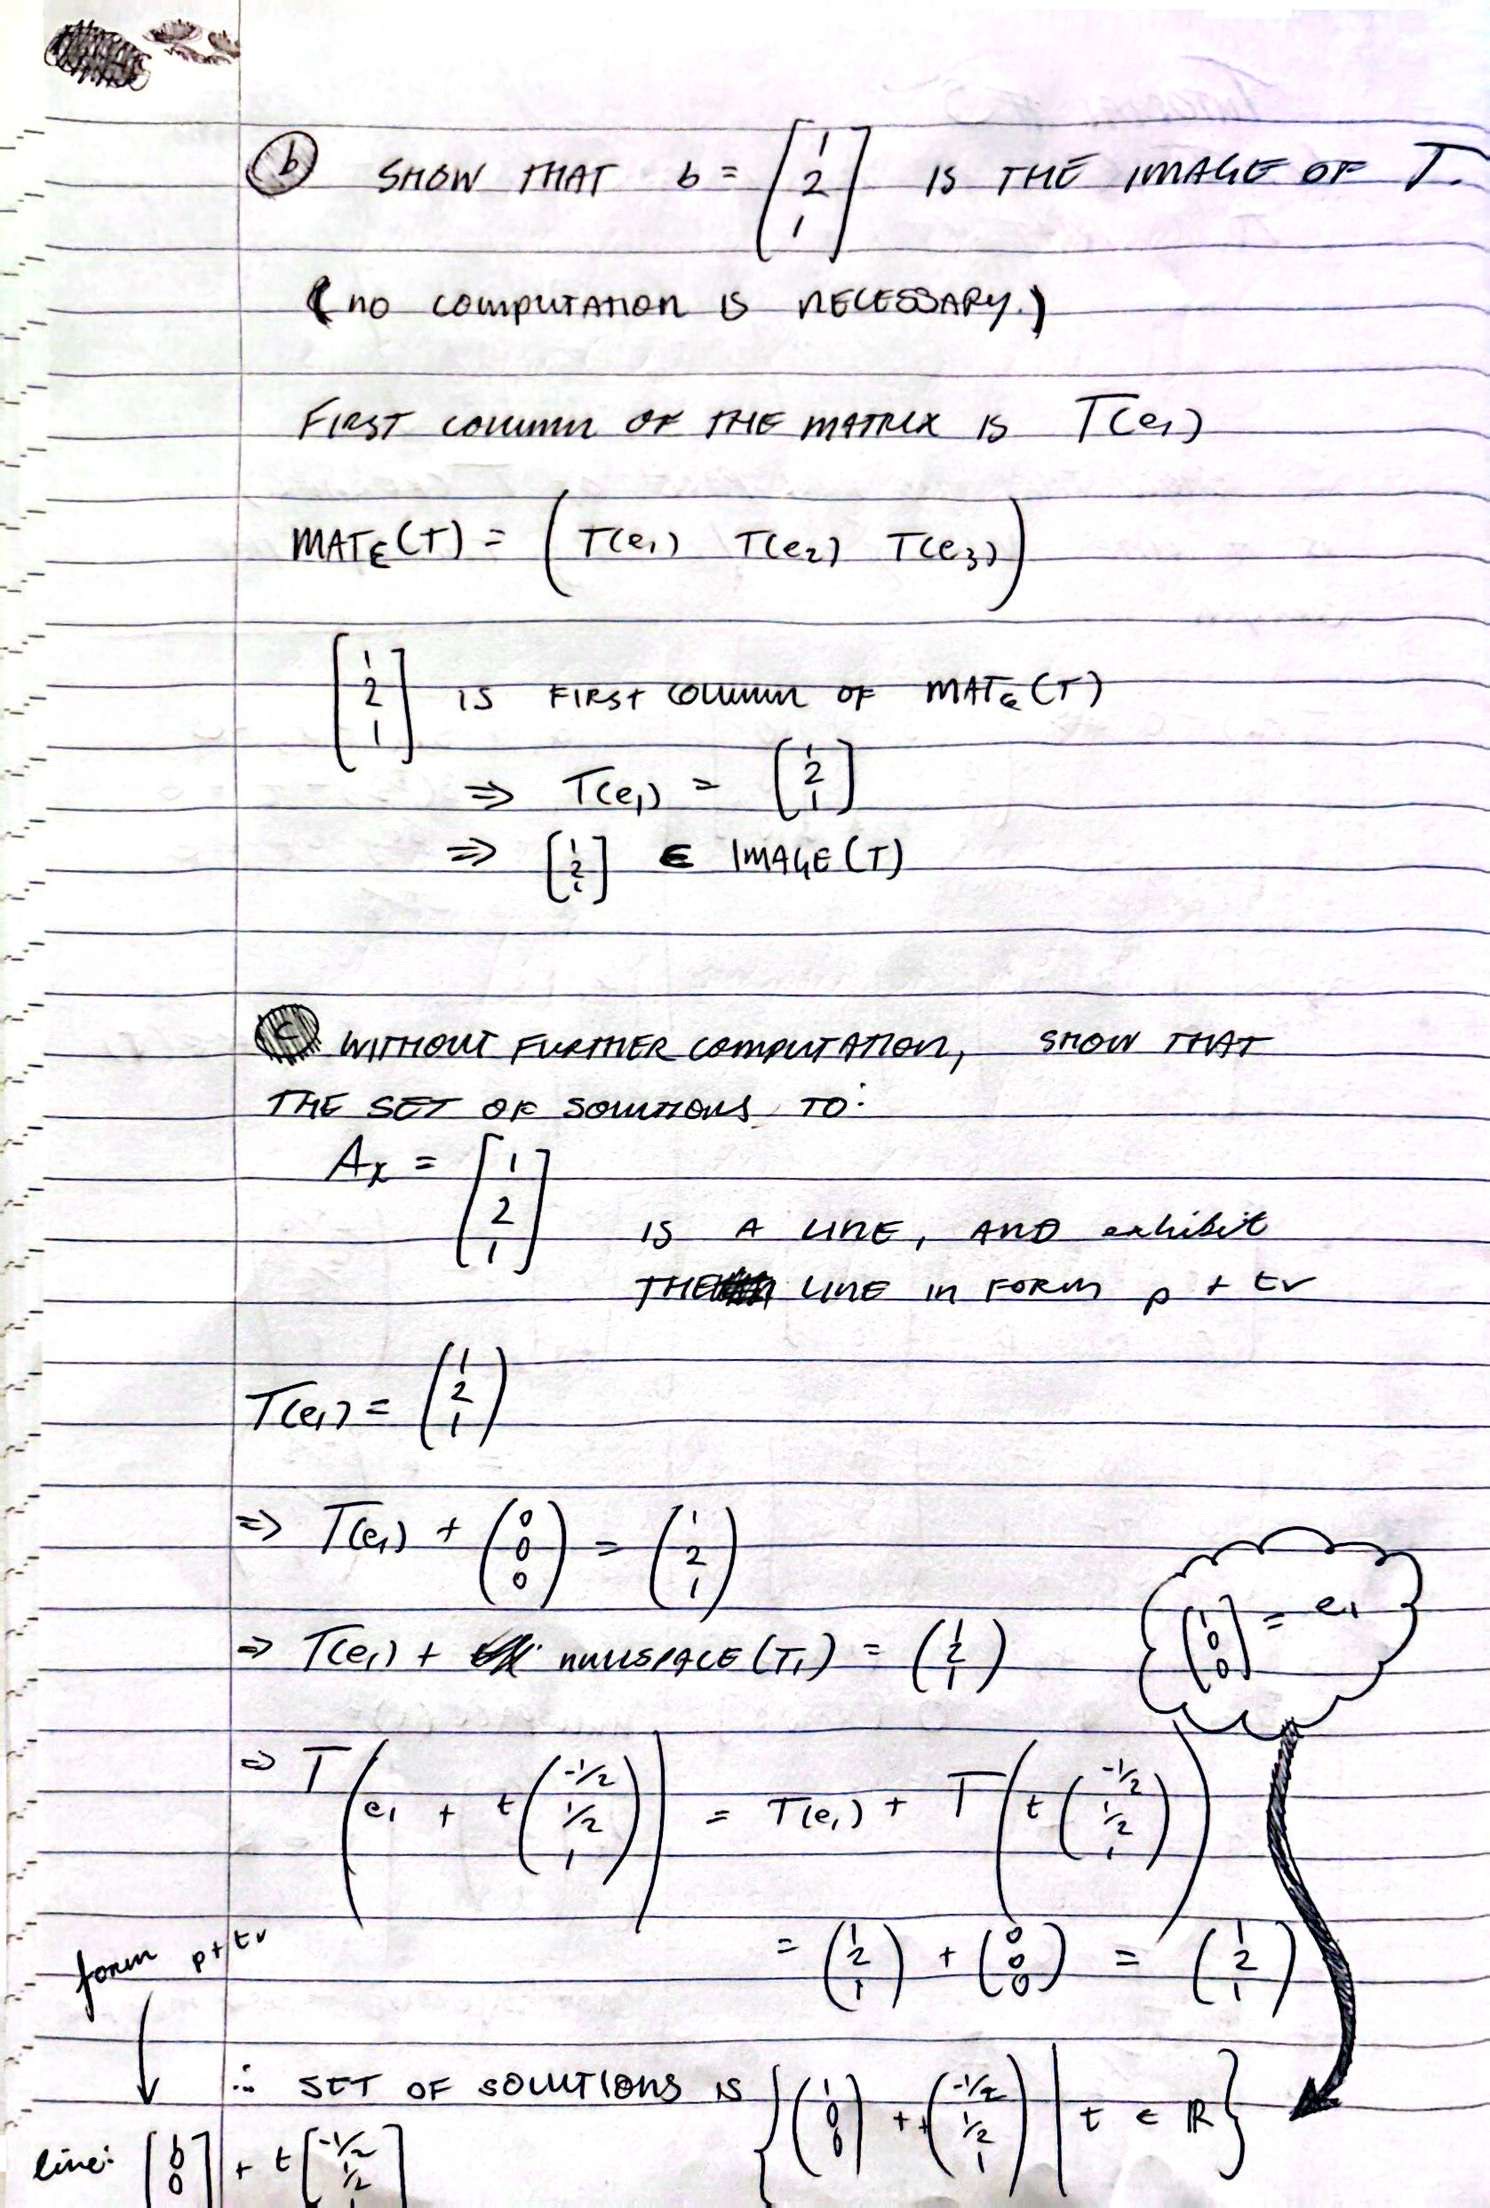 b SHOW THAT b = [1 2 1] IS THE IMAGE OF T.
(NO COMPUTATION IS NECESSARY.)
FIRST COLUMN OF THE MATRIX IS T(e₁)
MAT_E(T) = (T(e₁) T(e₂) T(e₃))
[1 2 1] IS FIRST COLUMN OF MAT_E(T)
⇒ T(e₁) = [1 2 1]
⇒ [1 2 1] ∈ IMAGE(T)
c WITHOUT FURTHER COMPUTATION, SHOW THAT
THE SET OF SOLUTIONS TO:
Ax = [1 2 1]
IS A LINE, AND exhibit
THE LINE IN FORM p + tv
T(e₁) = (1 2 1)
⇒ T(e₁) + (0 0 0) = (1 2 1)
[1 0 0] = e₁
⇒ T(e₁) + NULLSPACE(T₁) = (1 2 1)
⇒ T(e₁ + t(-1/2 1/2 1)) = T(e₁) + T(t(-1/2 1/2 1))
= (1 2 1) + (0 0 0) = (1 2 1)
form p + tv
∴ SET OF SOLUTIONS IS {(1 0 0) + t(-1/2 1/2 1) | t ∈ ℝ}
line: [1 0 0] + t[-1/2 1/2 1]